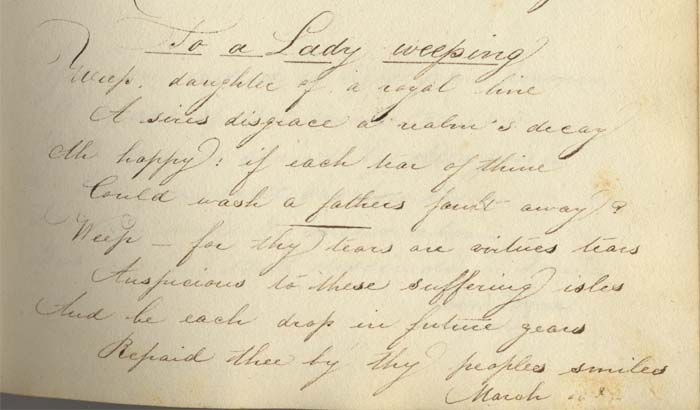 To a Lady weeping
Weep, daughter of a royal line
A sires disgrace a realm's decay
Ah happy: if each tear of thine
Could wash a fathers fault away?
Weep – for thy tears are virtues tears
Auspicious to these suffering isles
And be each drop in future years
Repaid thee by thy peoples smiles
March